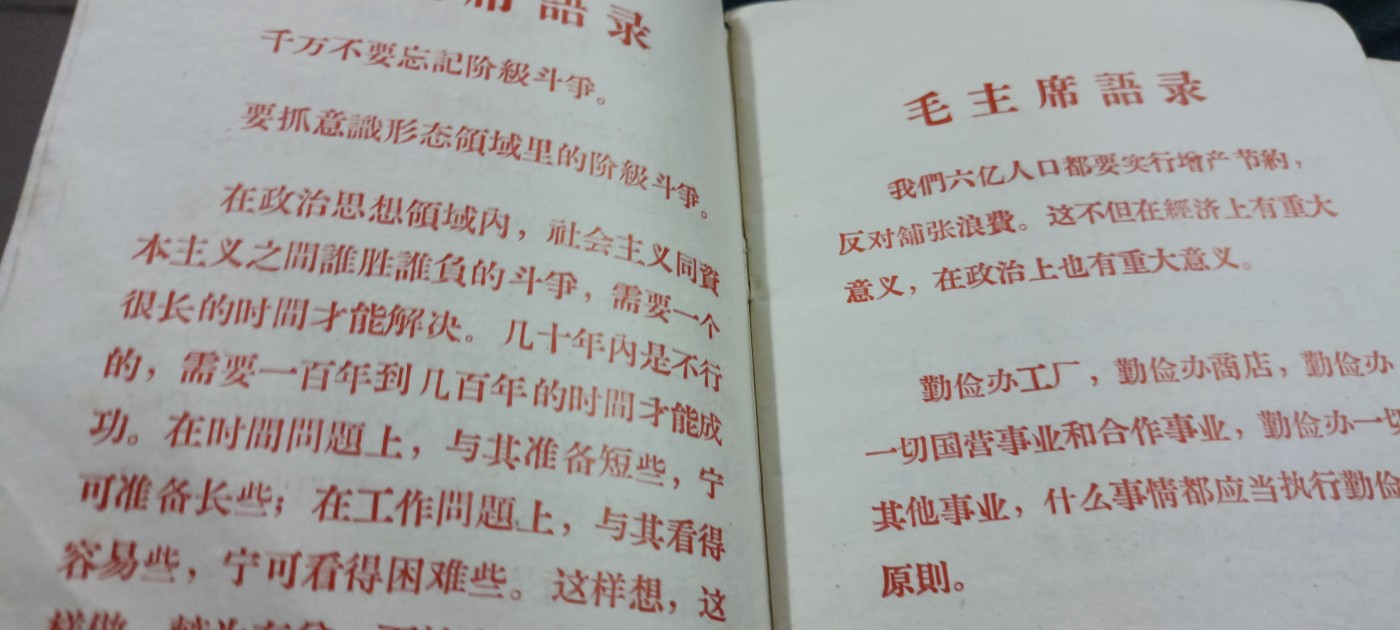 席語录
千万不要忘記阶級斗爭。
要抓意識形态領域里的阶級斗爭。
在政治思想領域內，社会主义同資
本主义之間誰胜誰負的斗爭，需要一个
很长的时間才能解决。几十年內是不行
的，需要一百年到几百年的时間才能成
功。在时間問題上，与其准备短些，宁
可准备长些；在工作問題上，与其看得
容易些，宁可看得困难些。这样想，这
样做，
毛主席語录
我們六亿人口都要实行增产节約，
反对舖张浪費。这不但在經济上有重大
意义，在政治上也有重大意义。
勤俭办工厂，勤俭办商店，勤俭办
一切国营事业和合作事业，勤俭办一切
其他事业，什么事情都应当执行勤俭
原則。